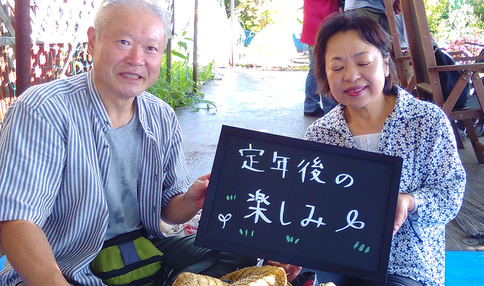 定年後の
楽しみ